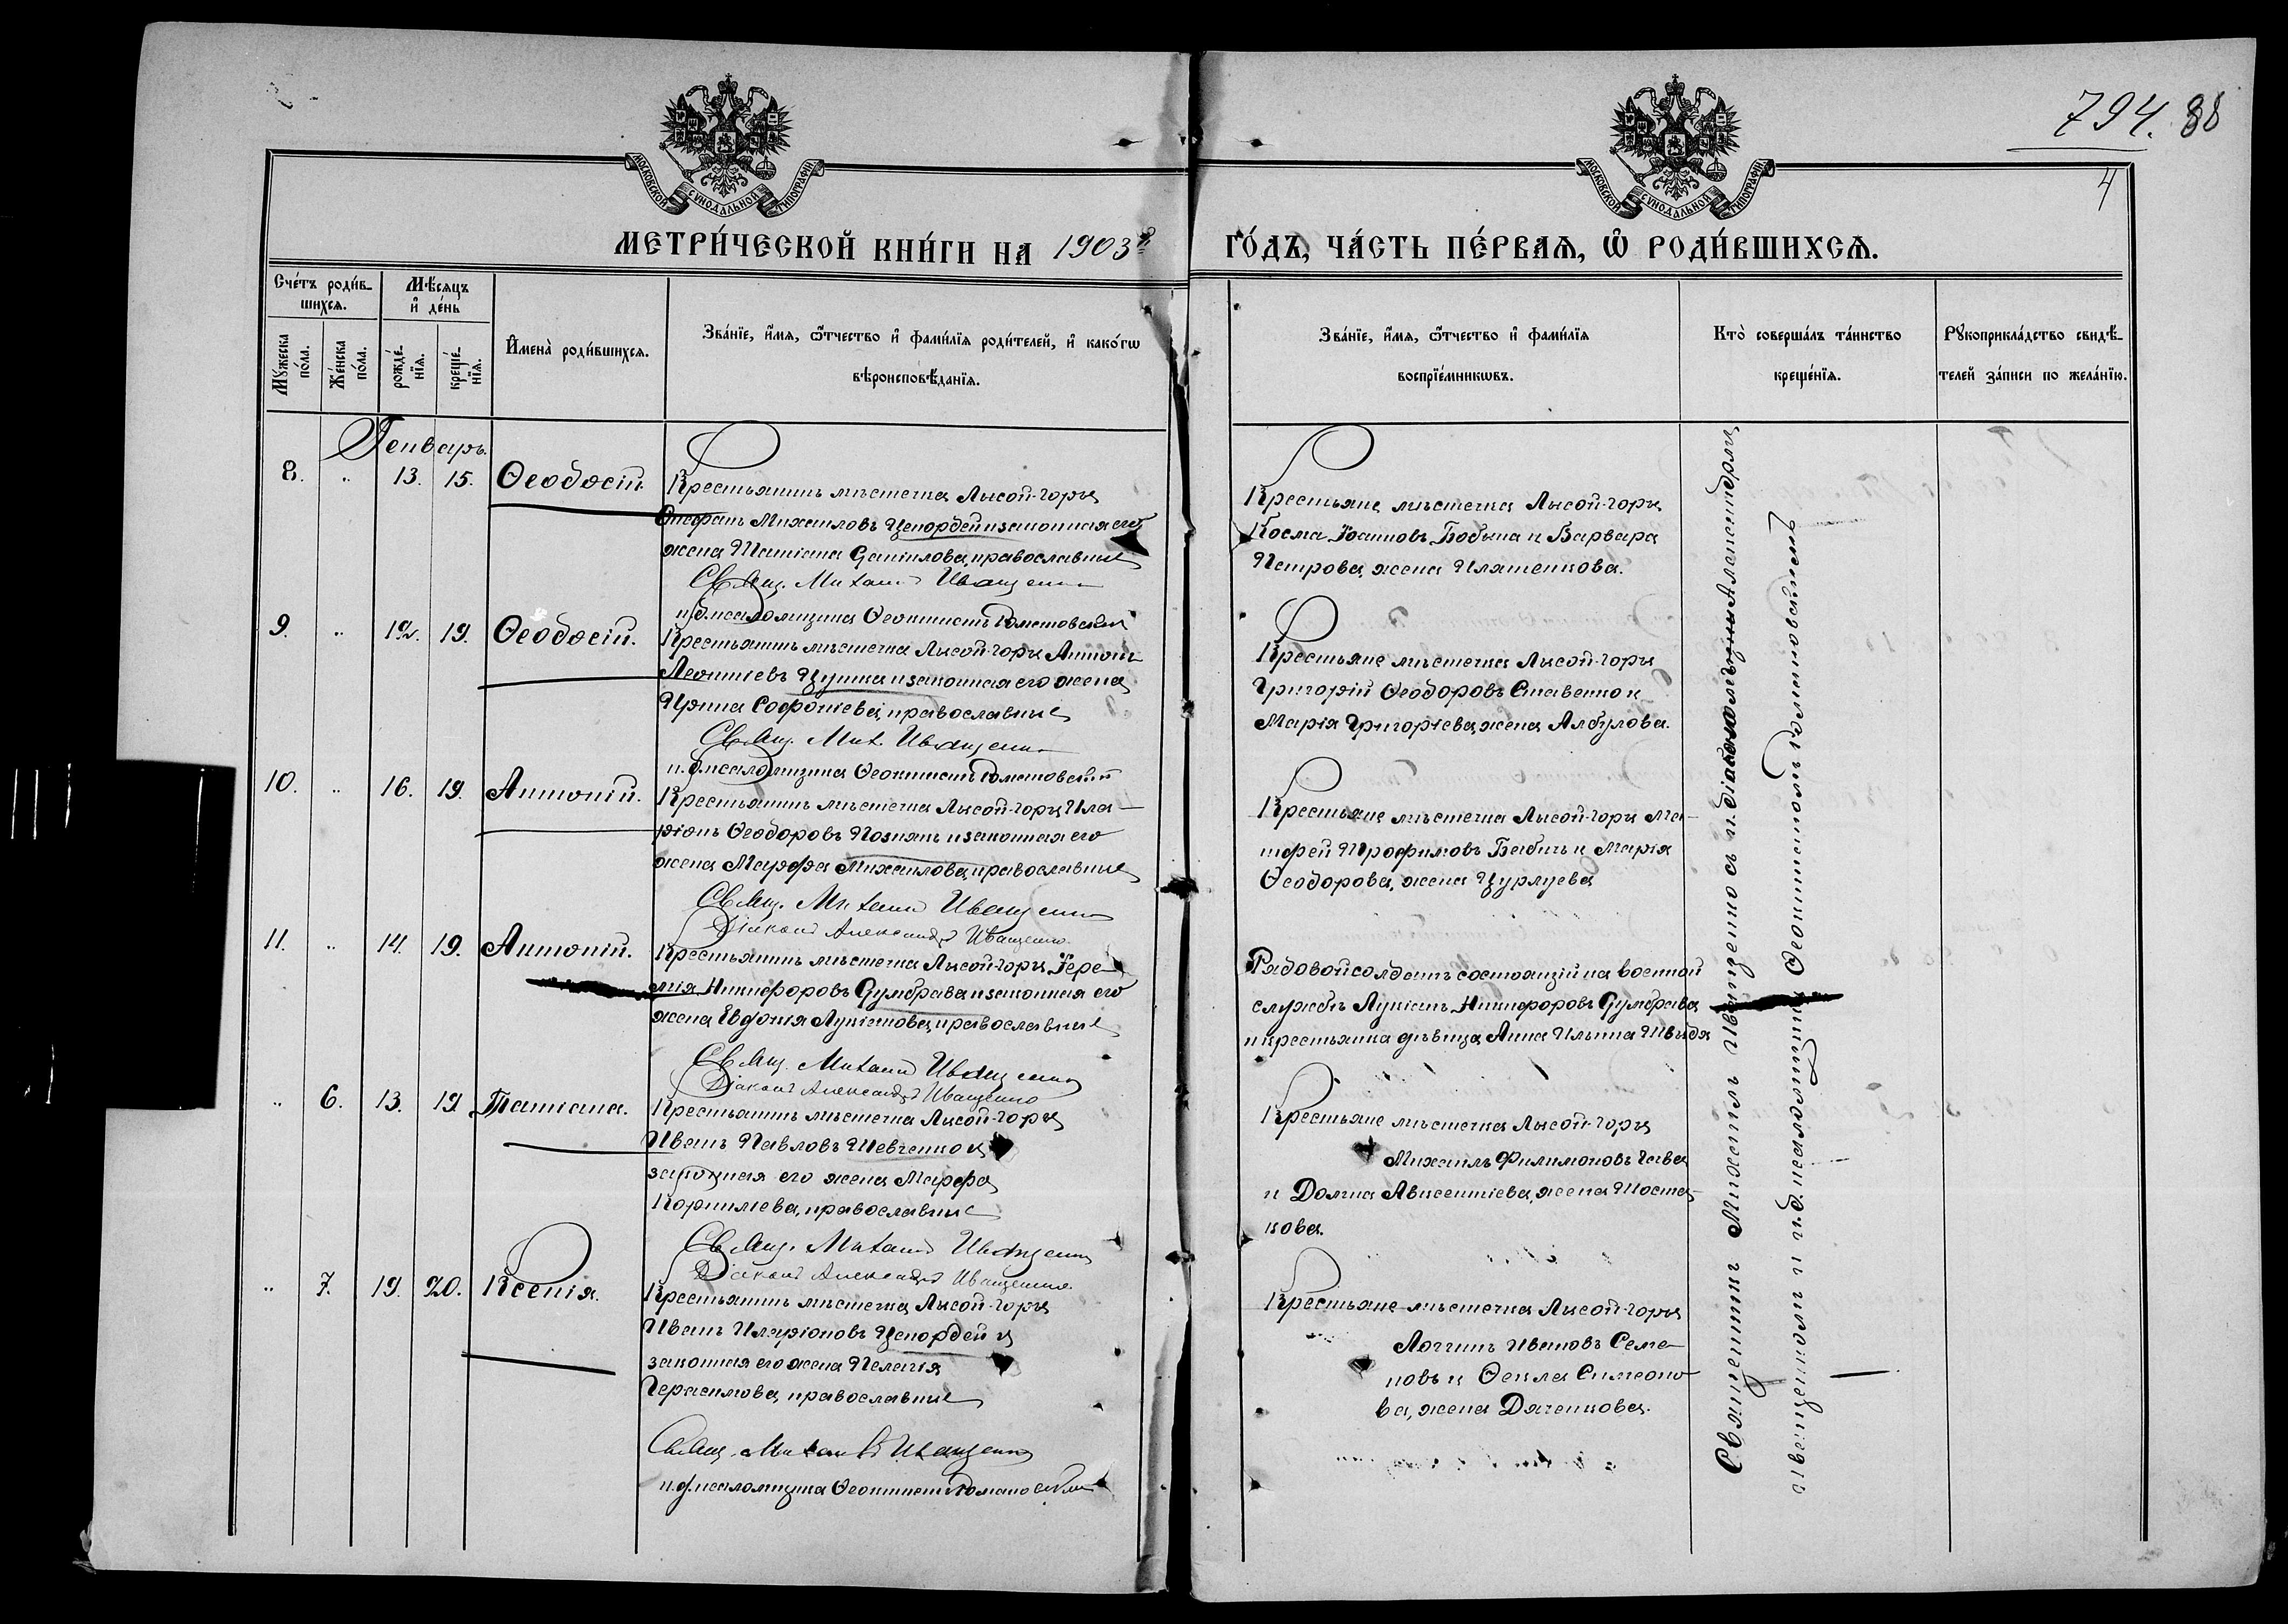 794. 88
4
МОСКОВСКОЙ СѴНОДАЛЬНОЙ ТИПОГРАФІИ
МОСКОВСКОЙ СѴНОДАЛЬНОЙ ТИПОГРАФІИ
МЕТРИ́ЧЕСКОЙ КНИ́ГИ НА 1903й ГО́ДЪ, ЧА́СТЬ ПЕ́РВАѦ, Ѽ РОДИ́ВШИХСѦ.
Сче́тъ роди́в-
шихсѧ.
Мѣ́сѧцъ
и҆ де́нь
Мꙋ́жеска
по́ла.
Же́нска
по́ла.
рожде́-
нїѧ.
креще́-
нїѧ.
И҆мена̀ роди́вшихсѧ.
Зва́нїе, и҆́мѧ, ѻ҆́тчество и҆ фами́лїѧ роди́телей, и҆ како́гѡ
вѣроисповѣ́данїѧ.
Зва́нїе, и҆́мѧ, ѻ҆́тчество и҆ фами́лїѧ
воспрїе́мникѡвъ.
Кто̀ соверша́лъ та́инство
креще́нїѧ.
Рꙋкоприкла́дство свидѣ́-
телей за́писи по жела́нїю.
Генварь.
8. " 13. 15. Ѳеодосій.
Крестьянинъ мѣстечка Лысой-горы
Онуфрій Михаиловъ Цепордей и законная его
жена Татіана Даніилова, православные
Свящ. Михаилъ Иващенко
и. д. псаломщика Ѳеоктистъ Романовскій
Крестьяне мѣстечка Лысой-горы
Косма Іоанновъ Бобына и Варвара
Петрова, жена Иляшенкова.
9. " 12. 19. Ѳеодосій.
Крестьянинъ мѣстечка Лысой-горы Антонъ
Леонтіевъ Цупка и законная его жена
Ирина Софоніева, православные
Свящ. Мих. Иващенко
и. д. псаломщика Ѳеоктистъ Романовскій
Крестьяне мѣстечка Лысой-горы
Григорій Ѳеодоровъ Ставенко и
Марія Григоріева, жена Албулова.
10. " 16. 19. Антоній.
Крестьянинъ мѣстечка Лысой-горы Ила-
ріонъ Ѳеодоровъ Познякъ и законная его
жена Марфа Михаилова, православные
Свящ. Михаилъ Иващенко
Діаконъ Александръ Иващенко.
Крестьяне мѣстечка Лысой-горы Мат-
тфей Трофимовъ Бабичъ и Марія
Ѳеодорова, жена Цурлуева
11. " 14. 19. Антоній.
Крестьянинъ мѣстечка Лысой-горы Іере-
мія Никифоровъ Думбрава и законная его
жена Евдокія Лукіанова, православные
Свящ. Михаилъ Иващенко
Діаконъ Александръ Иващенко
Рядовой солдатъ состоящій на военной
службѣ Лукіанъ Никифоровъ Думбрава
и крестьянка дѣвица Анна Ильина Швыдя
" 6. 13. 19 Татіана.
Крестьянинъ мѣстечка Лысой-горы
Иванъ Павловъ Шевченко и
законная его жена Марфа
Корнилієва, православные
Свящ. Михаилъ Иващенко
Діаконъ Александръ Иващенко.
Крестьяне мѣстечка Лысой-горы
Михаилъ Филимоновъ Чава
и Домна Авксентіева, жена Шоста-
кова.
" 7. 19. 20. Ксенія.
Крестьянинъ мѣстечка Лысой-горы
Иванъ Иларіоновъ Цепордей и
законная его жена Пелагія
Герасимова, православные
Свящ. Михаилъ Иващенко
и. д. псаломщика Ѳеоктистъ Романовскій
Крестьяне мѣстечка Лысой-горы
Логгинъ Ивановъ Семе-
новъ и Ѳекла Симеоно-
ва, жена Дяченкова.
Священникъ Михаилъ Иващенко съ и. діакономъ Александромъ
Иващенкомъ и и. д. псаломщика Ѳеоктистомъ Романовскимъ